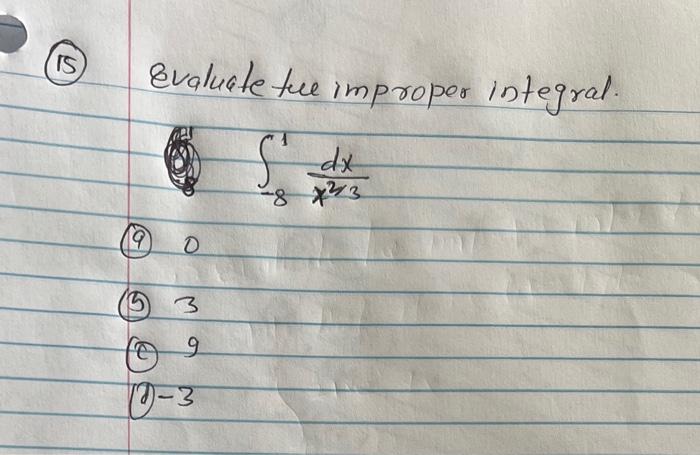 15 Evaluate the improper integral.
∫₋₈¹ dx/x^2/3
a 0
b 3
c 9
d -3